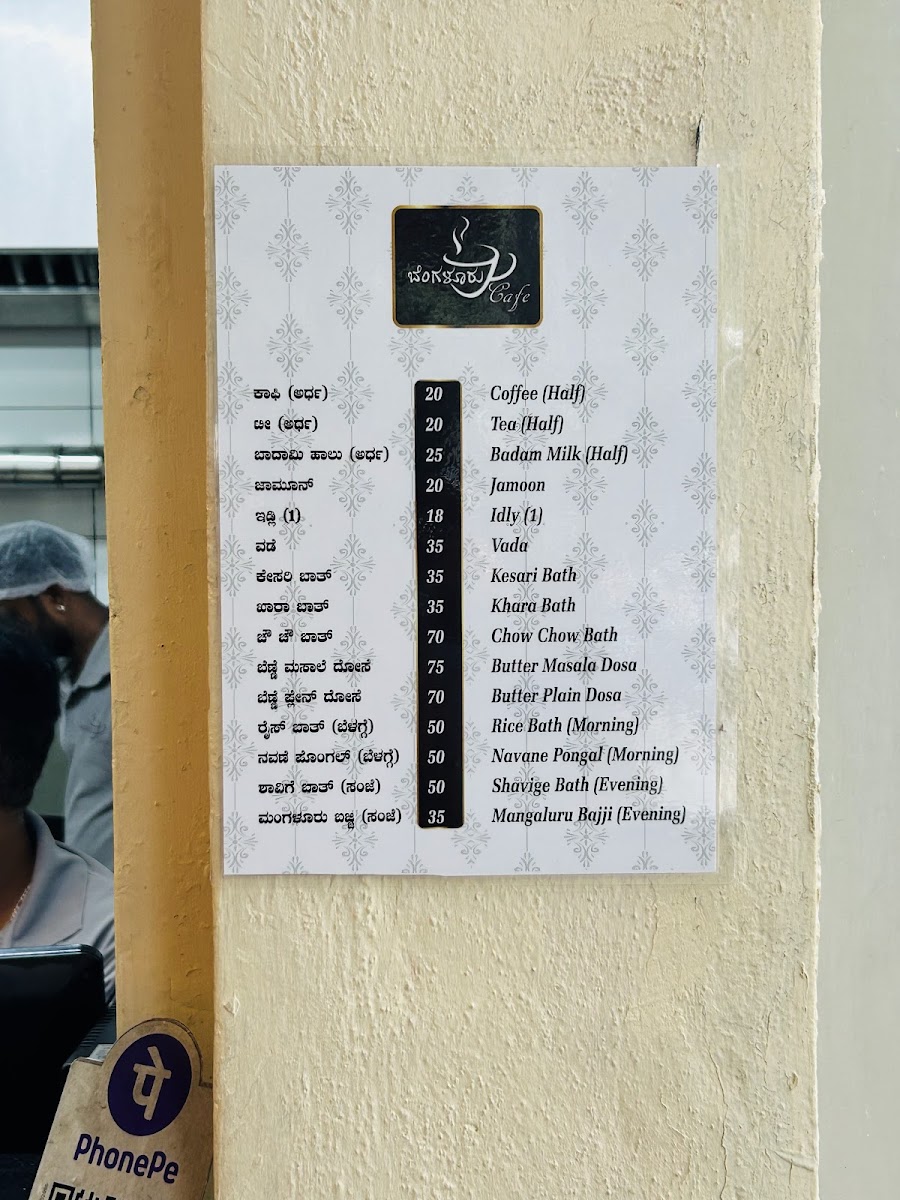 ಬೆಂಗಳೂರು
Cafe
ಕಾಫಿ (ಅರ್ಧ) 20 Coffee (Half)
ಟೀ (ಅರ್ಧ) 20 Tea (Half)
ಬಾದಾಮಿ ಹಾಲು (ಅರ್ಧ) 25 Badam Milk (Half)
ಜಾಮೂನ್ 20 Jamoon
ಇಡ್ಲಿ (1) 18 Idly (1)
ವಡೆ 35 Vada
ಕೇಸರಿ ಬಾತ್ 35 Kesari Bath
ಖಾರಾ ಬಾತ್ 35 Khara Bath
ಚೌ ಚೌ ಬಾತ್ 70 Chow Chow Bath
ಬೆಣ್ಣೆ ಮಸಾಲೆ ದೋಸೆ 75 Butter Masala Dosa
ಬೆಣ್ಣೆ ಪ್ಲೇನ್ ದೋಸೆ 70 Butter Plain Dosa
ರೈಸ್ ಬಾತ್ (ಬೆಳಗ್ಗೆ) 50 Rice Bath (Morning)
ನವಣೆ ಪೊಂಗಲ್ (ಬೆಳಗ್ಗೆ) 50 Navane Pongal (Morning)
ಶಾವಿಗೆ ಬಾತ್ (ಸಂಜೆ) 50 Shavige Bath (Evening)
ಮಂಗಳೂರು ಬಜ್ಜಿ (ಸಂಜೆ) 35 Mangaluru Bajji (Evening)
पे
PhonePe